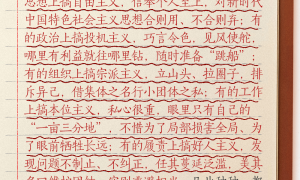 思想上搞自由主义，信奉个人至上，对新时代
中国特色社会主义思想合则用、不合则弃；有
的政治上搞投机主义，巧言令色，见风使舵，
哪里有利益就往哪里钻，随时准备“跳船”；
有的组织上搞宗派主义，立山头、拉圈子，排
斥异己，借集体之名行小团体之私；有的工作
上搞本位主义，私心很重，眼里只有自己的
“一亩三分地”，不惜为了局部损害全局、为
了眼前牺牲长远；有的履责上搞好人主义，发
现问题不制止、不纠正，任其蔓延泛滥，美其